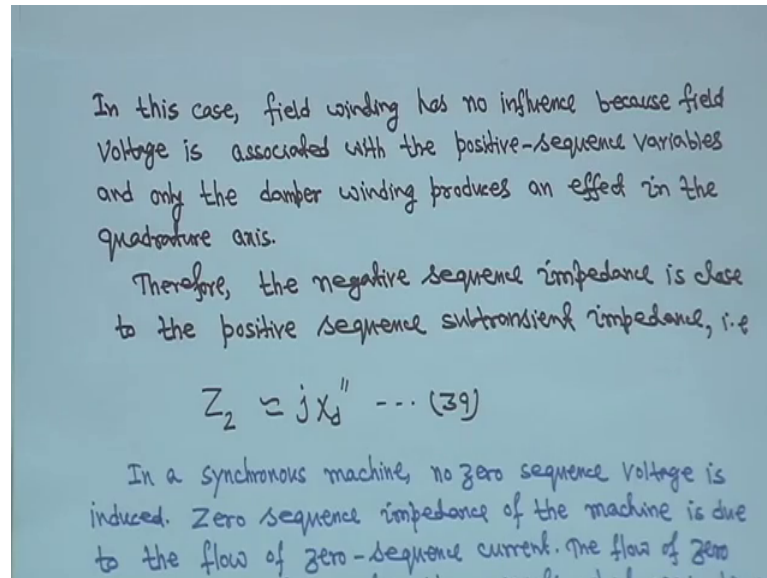 In this case, field winding has no influence because field
voltage is associated with the positive-sequence variables
and only the damper winding produces an effect in the
quadrature axis.
Therefore, the negative sequence impedance is close
to the positive sequence subtransient impedance, i.e
Z₂ ≃ jx_d'' --- (39)
In a synchronous machine, no zero sequence voltage is
induced. Zero sequence impedance of the machine is due
to the flow of zero-sequence current. The flow of zero